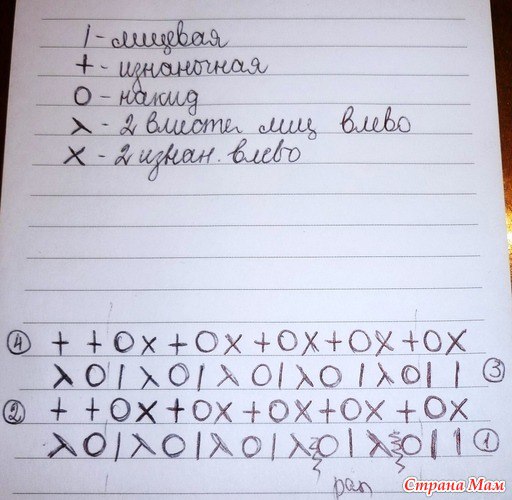 | - лицевая
+ - изнаночная
O - накид
λ - 2 вместе лиц влево
X - 2 изнан. влево
④ + + O X + O X + O X + O X + O X
λ O | λ O | λ O | λ O | λ O | | ③
② + + O X + O X + O X + O X + O X
λ O | λ O | λ O | λ O | λ O | | ①
рап
Страна Мам